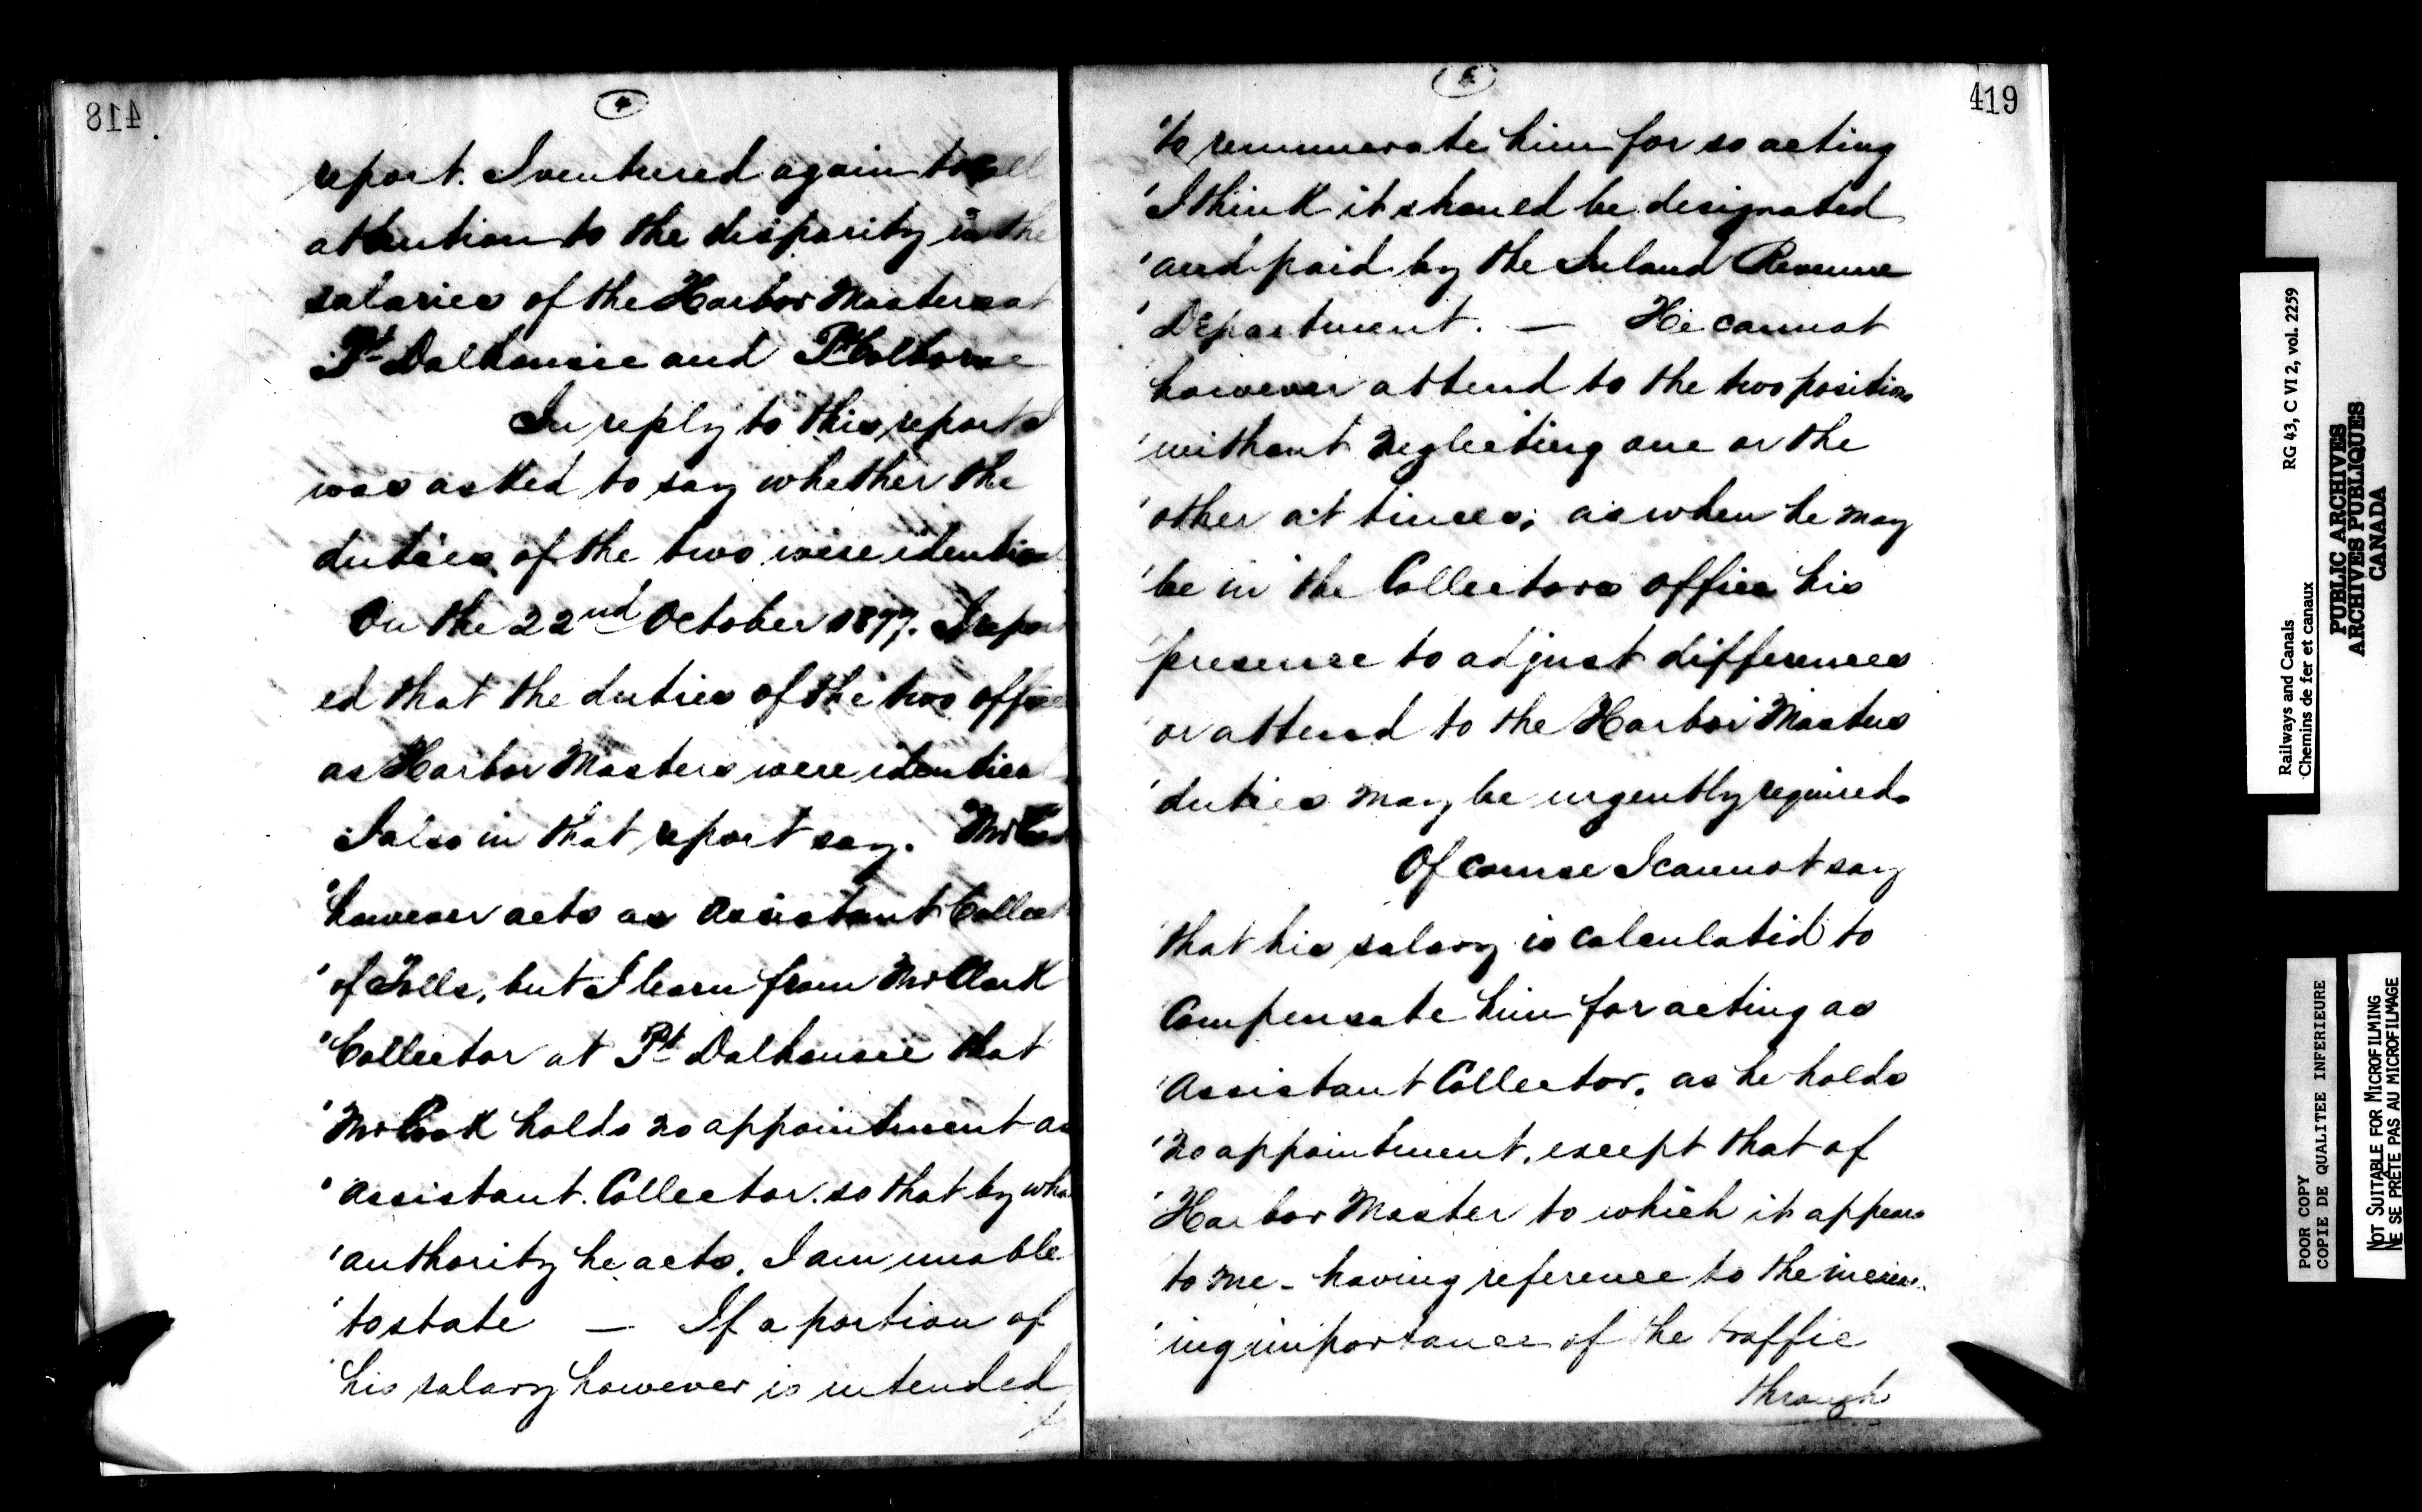 418
4
report. I ventured again to call
attention to the disparity in the
salaries of the Harbor Masters at
Pt Dalhousie and Pt Colborne
In reply to this report I
was asked to say whether the
duties of the two were identical
On the 22nd October 1877. I report
ed that the duties of the two offices
as Harbor Masters were identical
I also in that report say. Mr
'however acts as assistant Collect
'of Tolls, but I learn from Mr Clark
'Collector at Pt Dalhousie that
'Mr Cook holds no appointment as
'assistant Collector. so that by wha
'authority he acts, I am unable
'to state — If a portion of
'his salary however is intended
419
5
'to remunerate him for so acting
'I think it should be designated
'and paid by the Inland Revenue
'Department. — He cannot
however attend to the two positions
'without neglecting one or the
'other at times; as when he may
'be in the Collectors office his
'presence to adjust differences
'or attend to the Harbor Masters
'duties may be urgently required.
Of course I cannot say
that his salary is calculated to
Compensate him for acting as
'Assistant Collector, as he holds
'no appointment, except that of
'Harbor Master to which it appears
to me - having reference to the
'ing importance of the traffic
through
Railways and Canals RG 43, C VI 2, vol. 2259
Chemins de fer et canaux
PUBLIC ARCHIVES
ARCHIVES PUBLIQUES
CANADA
POOR COPY
COPIE DE QUALITEE INFERIEURE
NOT SUITABLE FOR MICROFILMING
NE SE PRETE PAS AU MICROFILMAGE